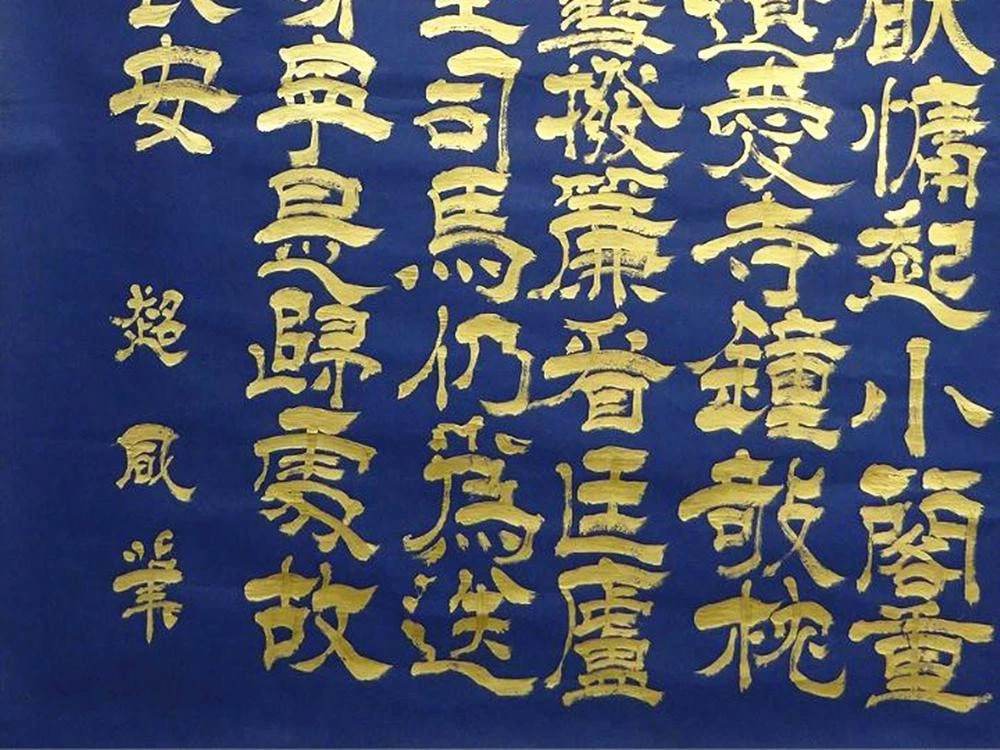 慵起小閣重
遺愛寺鐘敧枕
雪撥簾看匡廬
司馬仍為送
寧是歸處故
長安
超 筆